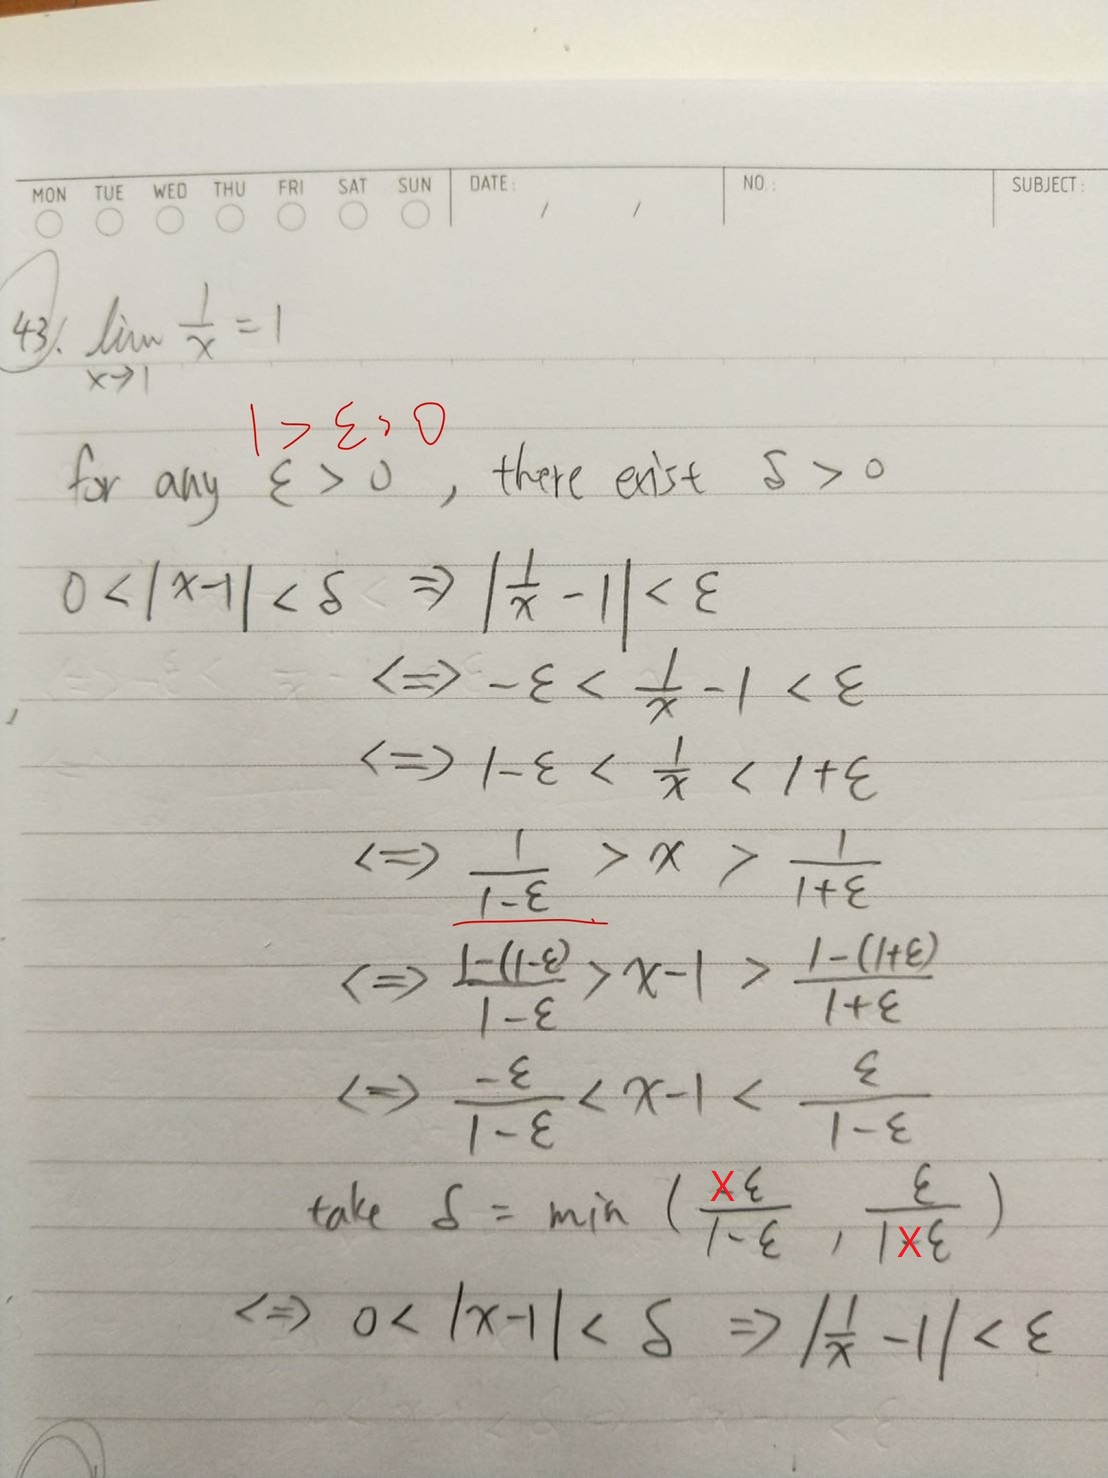 MON TUE WED THU FRI SAT SUN DATE: / / NO.: SUBJECT:
43. lim 1/x = 1
x→1
1 > ε > 0
for any ε > 0 , there exist δ > 0
0 < |x-1| < δ ⇒ |1/x - 1| < ε
<=> -ε < 1/x - 1 < ε
<=> 1-ε < 1/x < 1+ε
<=> 1/(1-ε) > x > 1/(1+ε)
<=> (1-(1-ε))/(1-ε) > x-1 > (1-(1+ε))/(1+ε)
<=> -ε/(1-ε) < x-1 < ε/(1-ε)
take δ = min ( xε/(1-ε) , ε/(1xε) )
<=> 0 < |x-1| < δ => |1/x - 1| < ε